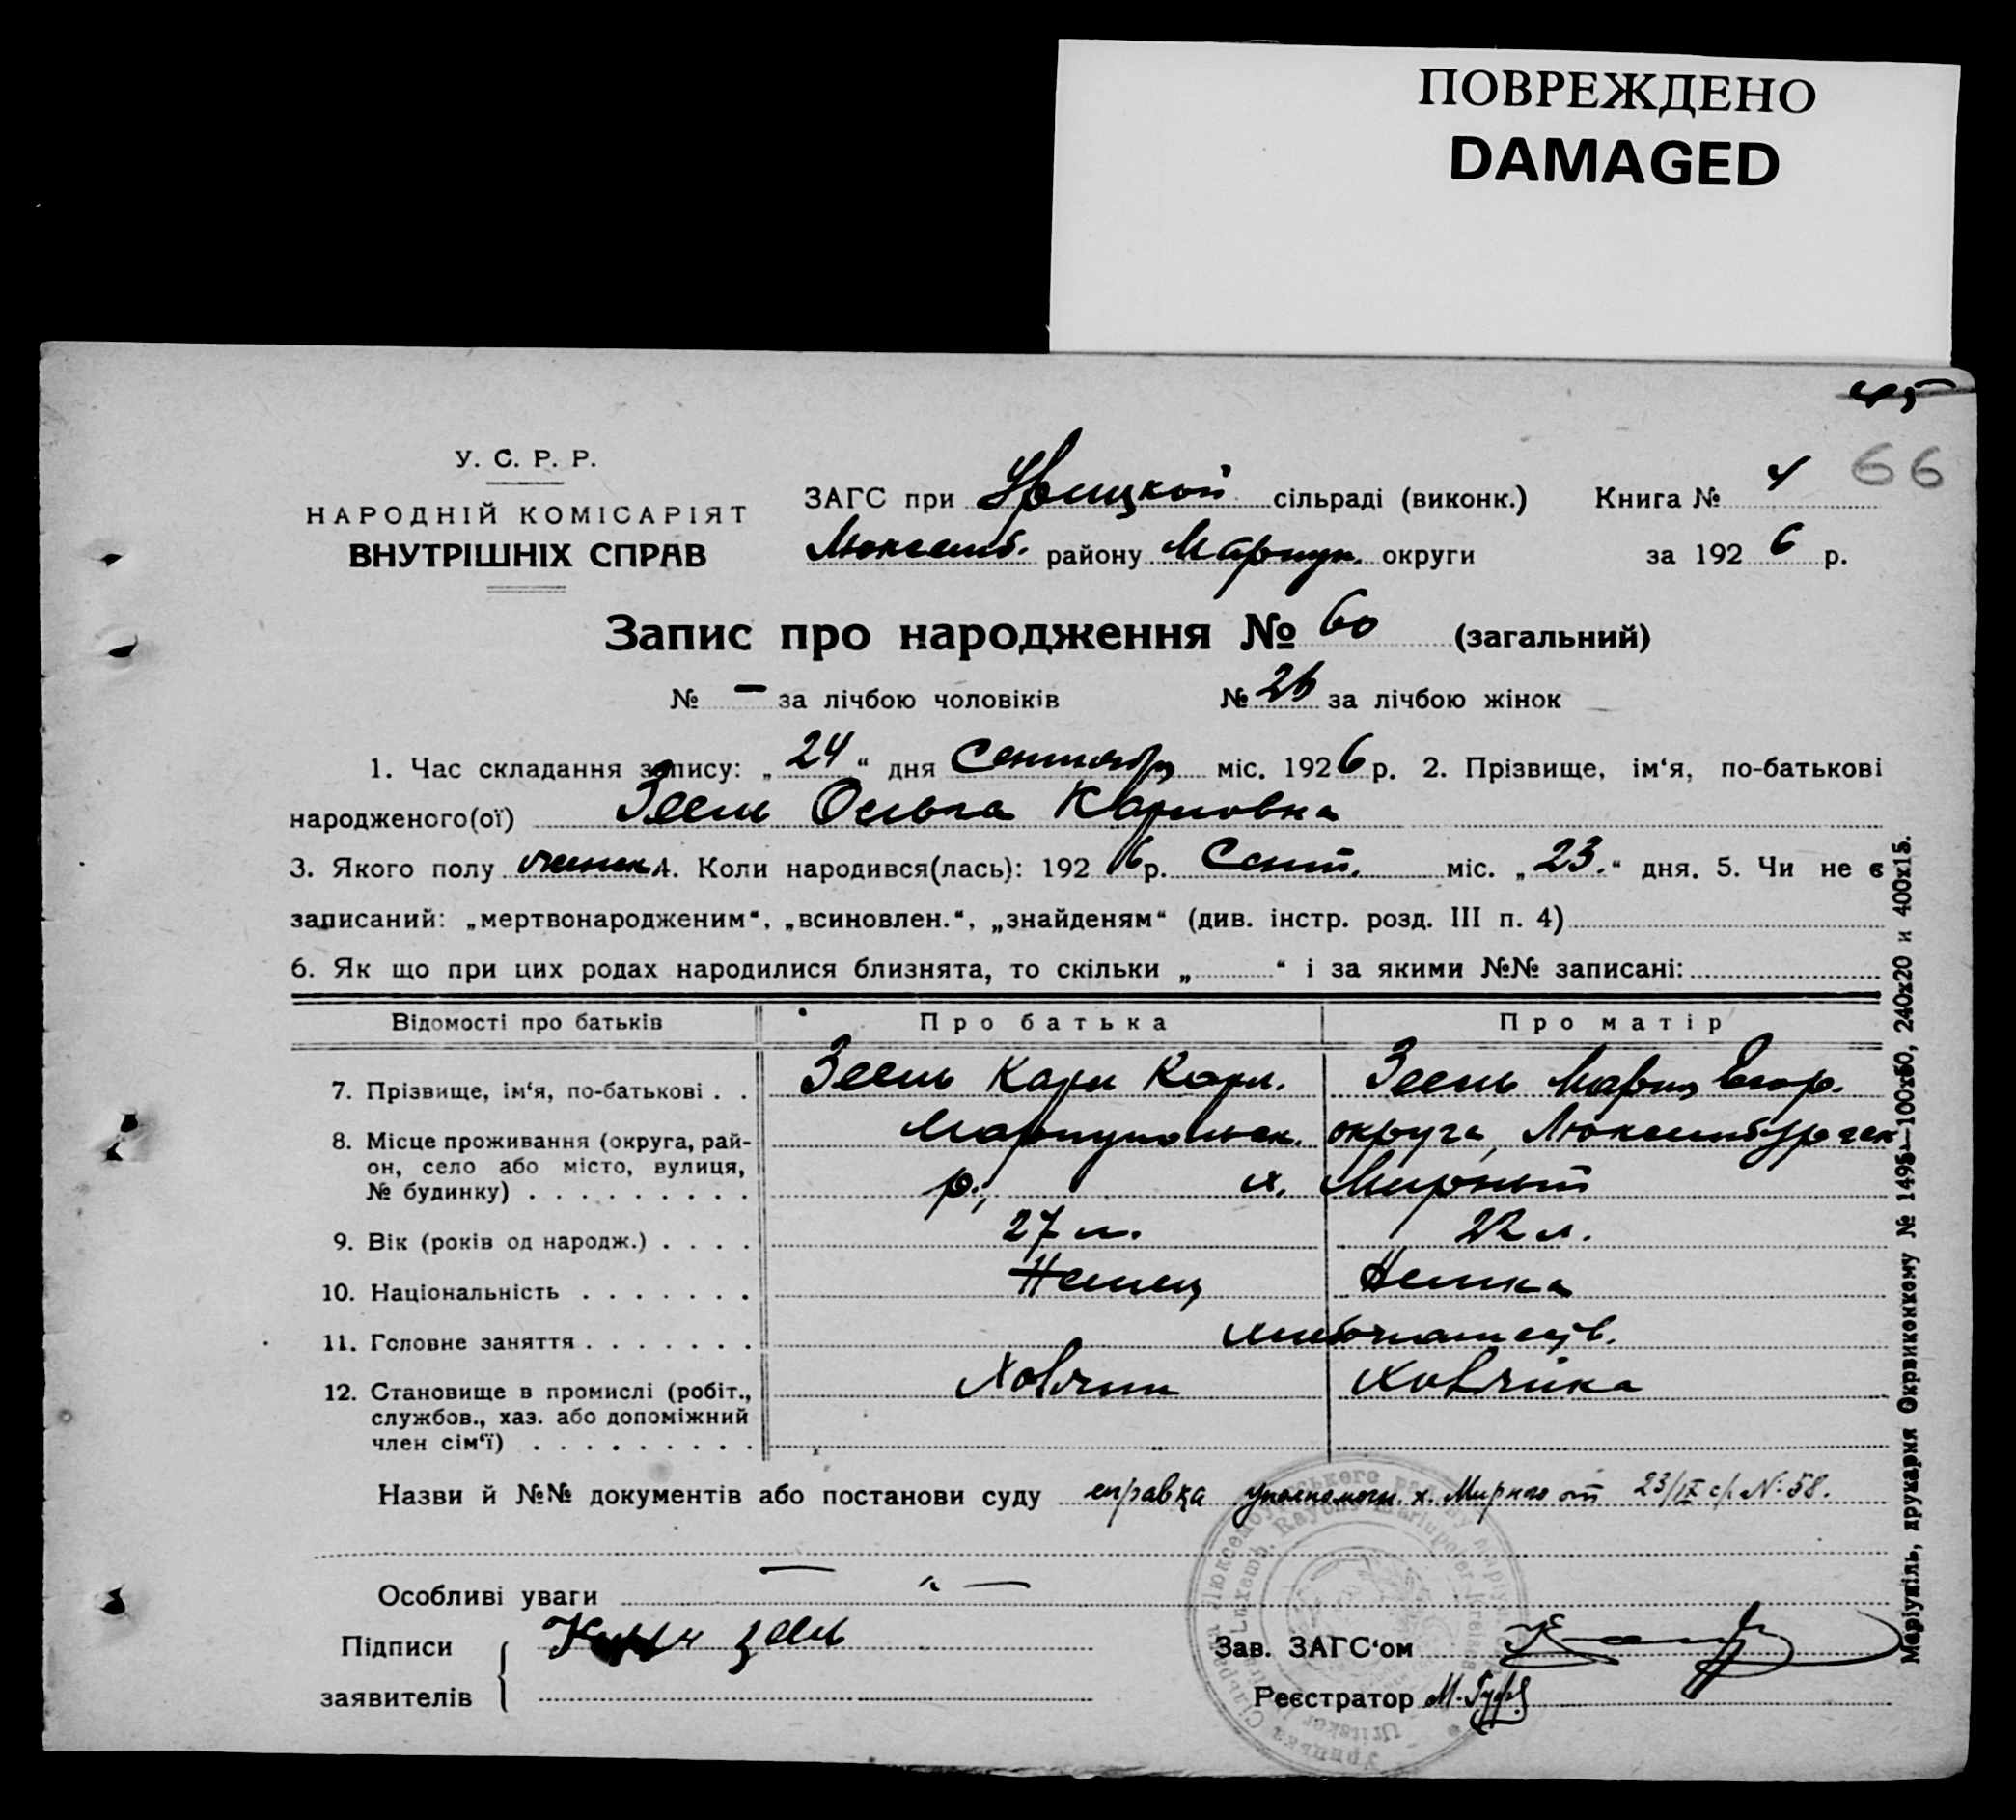 ПОВРЕЖДЕНО
DAMAGED
45
66
У. С. Р. Р.
НАРОДНІЙ КОМІСАРІЯТ
ВНУТРІШНІХ СПРАВ
ЗАГС при Урицкой сільраді (виконк.) Книга № 4
Люксемб. району Мариуп. округи за 1926 р.
Запис про народження № 60 (загальний)
№ – за лічбою чоловіків № 26 за лічбою жінок
1. Час складання запису: „24“ дня Сентября міс. 1926 р. 2. Прізвище, ім‘я, по-батькові
народженого(ої) Зеель Ольга Карловна
3. Якого полу женск. 4. Коли народився(лась): 1926 р. Сент. міс. „23.“ дня. 5. Чи не є
записаний: „мертвонародженим“, „всиновлен.“, „знайденям“ (див. інстр. розд. III п. 4)
6. Як що при цих родах народилися близнята, то скільки „ “ і за якими №№ записані:
Відомості про батьків Про батька Про матір
7. Прізвище, ім‘я, по-батькові . . Зеель Карл Карл. Зеель Мария Егор.
8. Місце проживання (округа, рай- Мариупольск. округа, Люксембургск.
он, село або місто, вулиця,
№ будинку) . . . . . . . . . р., х. Мирный
9. Вік (років од народж.) . . . . 27 л. 22 л.
10. Національність . . . . . . . Немец Немка
11. Головне заняття . . . . . . . хлебопашеств.
12. Становище в промислі (робіт., Хозяин Хозяйка
службов., хаз. або допоміжний
член сім‘ї) . . . . . . . . .
Назви й №№ документів або постанови суду справка уполномоч. х. Мирного от 23/IX с/г №58.
Особливі уваги — „ —
Підписи Карл Зеель
заявителів
Зав. ЗАГС‘ом
Реєстратор М.
Маріупіль, друкарня Окрвиконкому № 1495—100х50, 240х20 и 400х15.